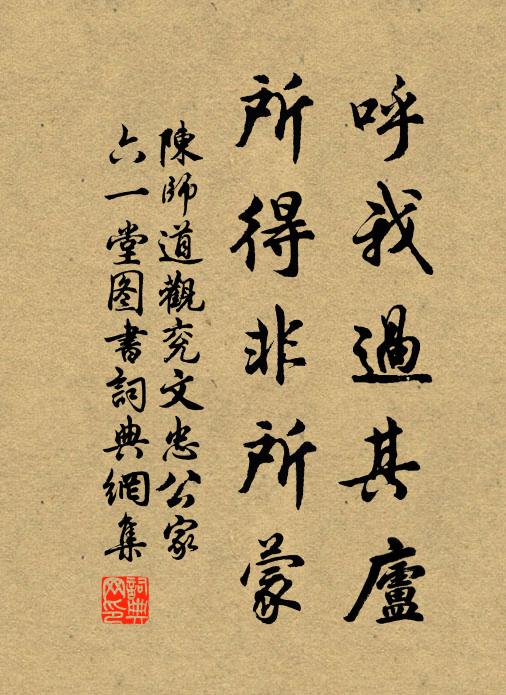 呼我過其廬
所得非所蒙
陳師道觀兖文忠公家
六一堂图書詞典網集
詞典网印